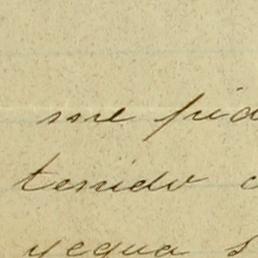 me pid
tenido
yegua s